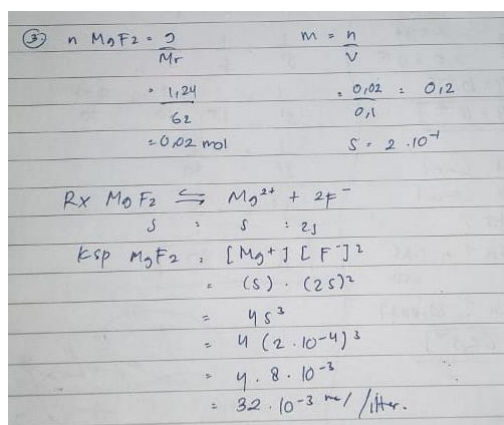 ③ n MgF2 = g/Mr
= 1,24/62
= 0,02 mol
m = n/V
= 0,02/0,1 = 0,2
S = 2 . 10⁻¹
Rx MgF2 ⇌ Mg²⁺ + 2F⁻
S : S : 2S
Ksp MgF2 = [Mg⁺] [F⁻]²
= (S) . (2S)²
= 4S³
= 4 (2 . 10⁻⁴)³
= 4 . 8 . 10⁻³
= 32 . 10⁻³ mol/liter.